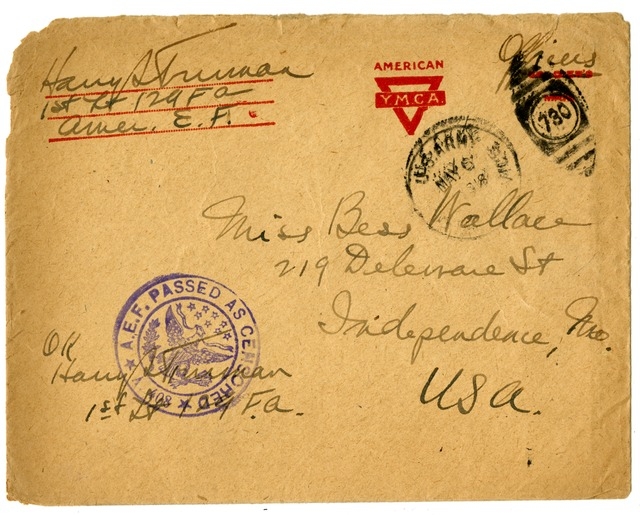 Harry S Truman
1st Lt 129 F a
Amer. E. F.
AMERICAN
Y.M.C.A.
Officers
780
U.S. ARMY
MAY
Miss Bess Wallace
219 Deleware St
Independence, Mo.
USA.
A.E.F. PASSED AS CENSORED
OK
Harry S Truman
1st Lt F.a.